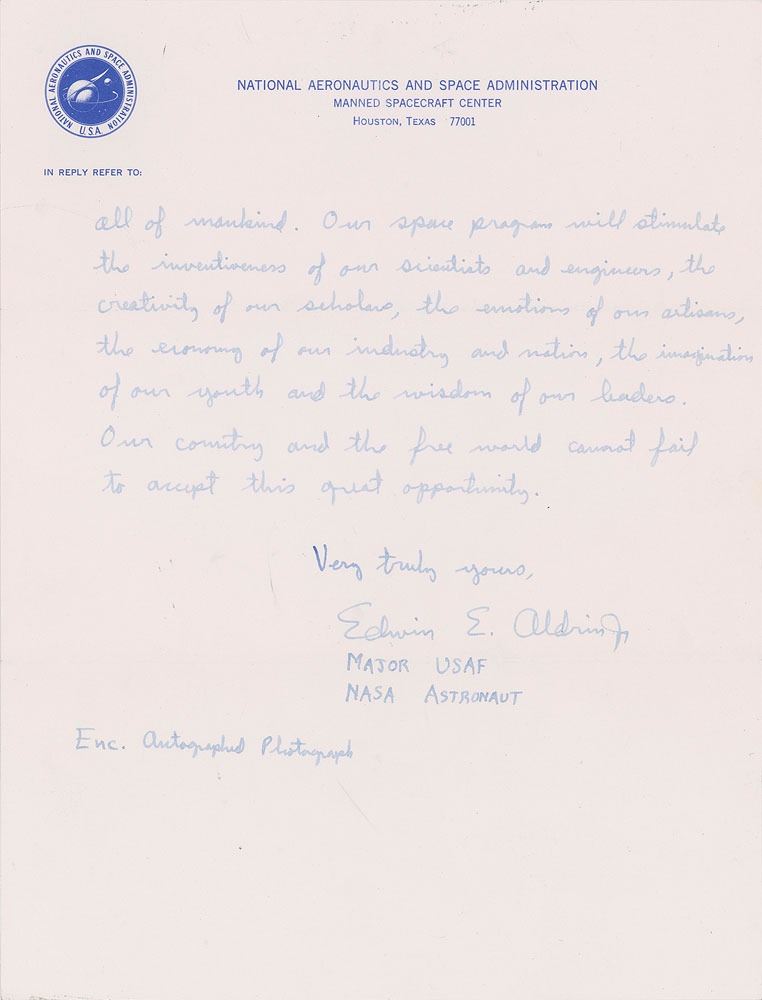 NATIONAL AERONAUTICS AND SPACE ADMINISTRATION
U.S.A.
NATIONAL AERONAUTICS AND SPACE ADMINISTRATION
MANNED SPACECRAFT CENTER
HOUSTON, TEXAS 77001
IN REPLY REFER TO:
all of mankind. Our space program will stimulate
the inventiveness of our scientists and engineers, the
creativity of our scholars, the emotions of our artisans,
the economy of our industry and nation, the imagination
of our youth and the wisdom of our leaders.
Our country and the free world cannot fail
to accept this great opportunity.
Very truly yours,
Edwin E. Aldrin Jr
MAJOR USAF
NASA ASTRONAUT
Enc. Autographed Photograph